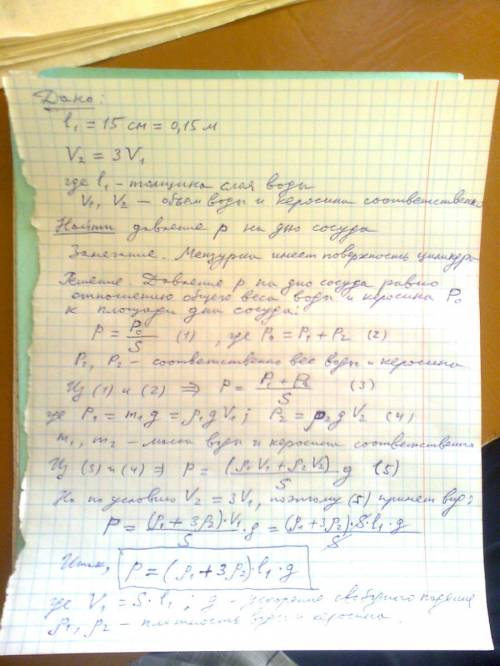 Дано:
l₁ = 15 см = 0,15 м
V₂ = 3V₁
где l₁ - толщина слоя воды
V₁, V₂ – объем воды и керосина соответственно
Найти давление p на дно сосуда
Замечание. Мензурка имеет поверхность цилиндра
Решение. Давление p на дно сосуда равно
отношению общего веса воды и керосина P₀
к площади дна сосуда:
p = P₀/S (1) , где P₀ = P₁ + P₂ (2)
P₁, P₂ – соответственно вес воды и керосина
Из (1) и (2) ⇒ p = (P₁ + P₂)/S (3)
где P₁ = m₁g = ρ₁gV₁ ; P₂ = ρ₂gV₂ (4)
m₁, m₂ – масса воды и керосина соответственно
Из (3) и (4) ⇒ p = (ρ₁V₁ + ρ₂V₂)/S g (5)
Но по условию V₂ = 3V₁, поэтому (5) примет вид:
p = (ρ₁ + 3ρ₂)·V₁/S · g = (ρ₁ + 3ρ₂)·S·l₁·g/S
Итак, p = (ρ₁ + 3ρ₂)·l₁·g
где V₁ = S·l₁ ; g – ускорение свободного падения
ρ₁, ρ₂ – плотность воды и керосина.